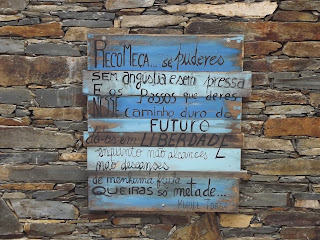 RECOMEÇA... se puderes
SEM angústia e sem pressa
E os Passos que deres
NESSE caminho duro do
FUTURO
dá-os em LIBERDADE
enquanto não alcances
não descanses
de nenhum fruto
QUEIRAS só metade...
Miguel Torga